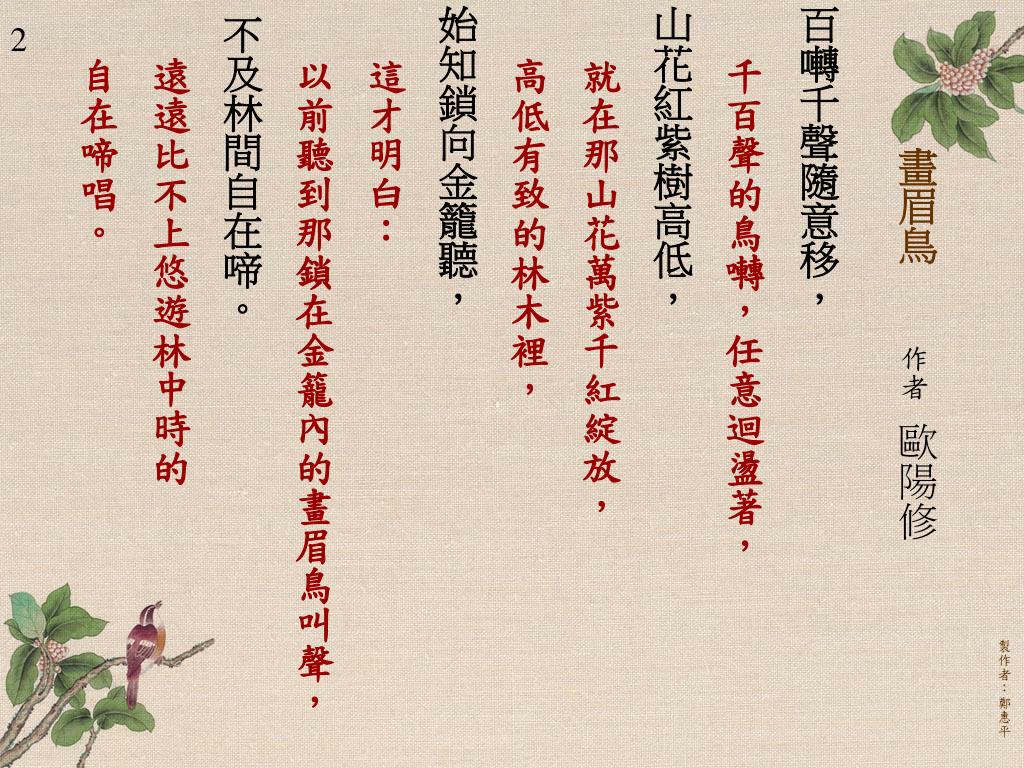 畫眉鳥 作者 歐陽修
百囀千聲隨意移，
千百聲的鳥囀，任意迴盪著，
山花紅紫樹高低，
就在那山花萬紫千紅綻放，
高低有致的林木裡，
始知鎖向金籠聽，
這才明白：
以前聽到那鎖在金籠內的畫眉鳥叫聲，
不及林間自在啼。
遠遠比不上悠遊林中時的
自在啼唱。
製作者：鄭惠平
2